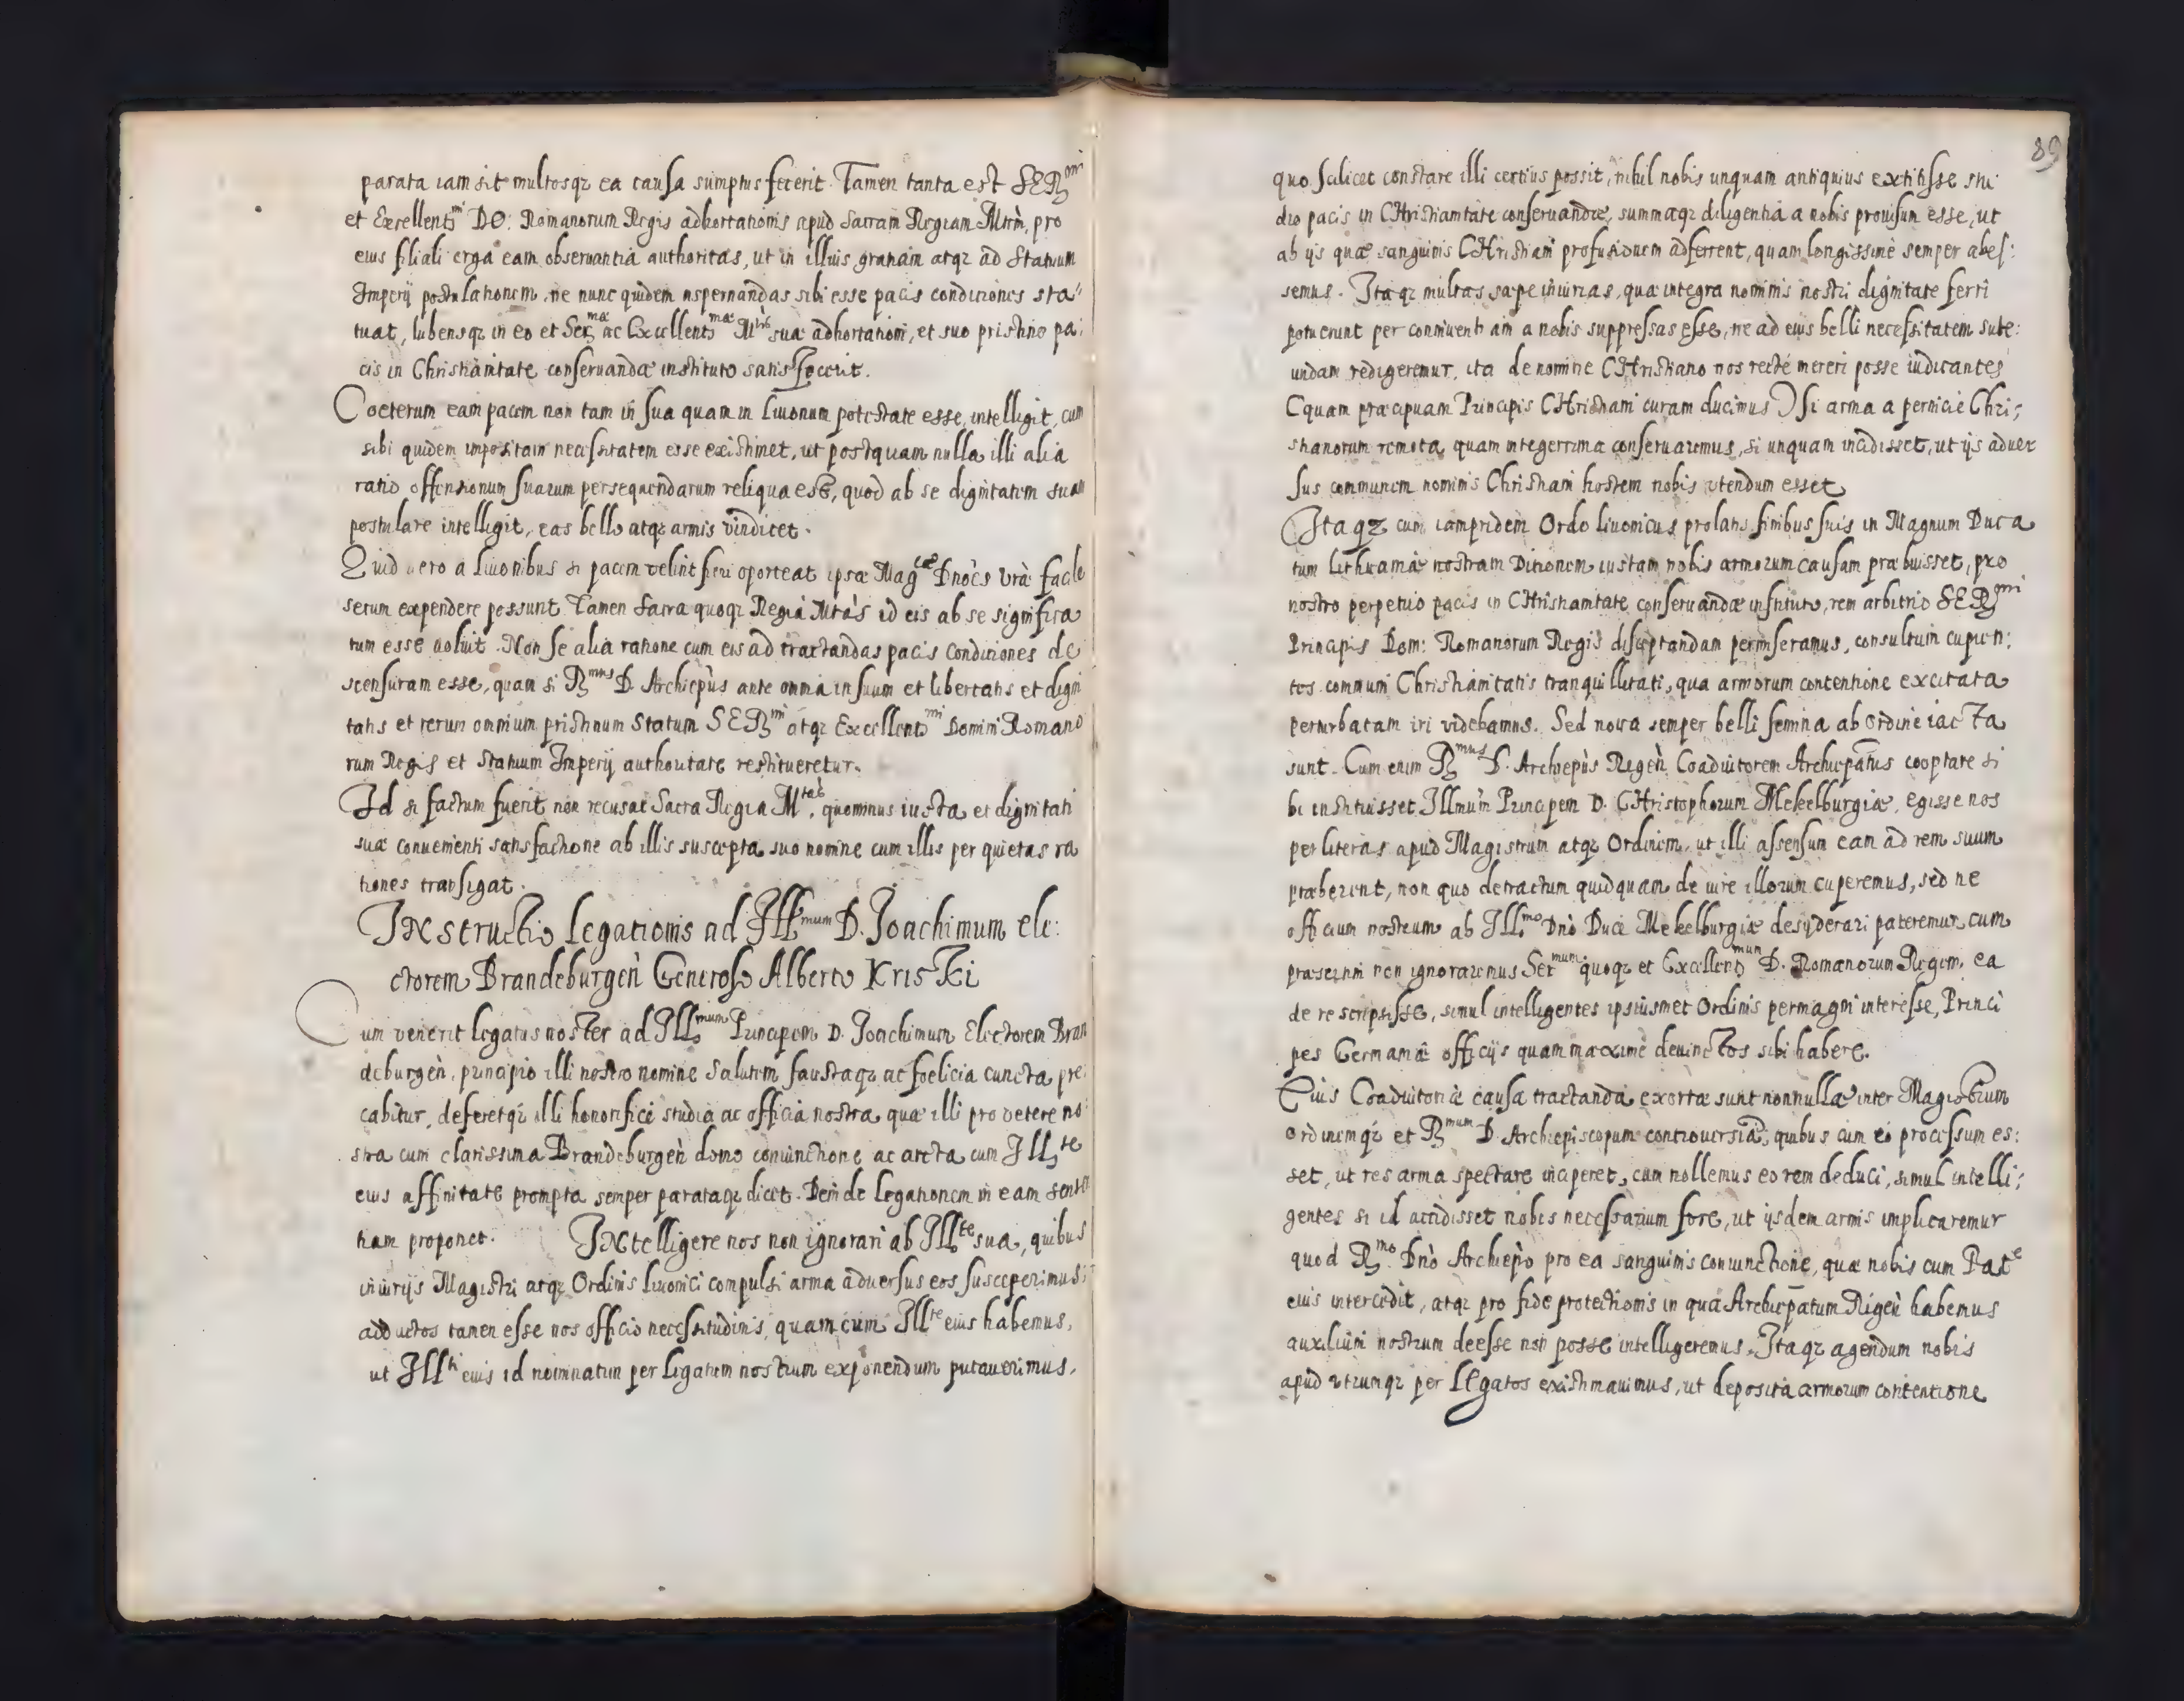 parata iam sit multosqz ea causa sumptus fecerit. Tamen tanta est SERmi
et Excellentmi DO: Romanorum Regis adhortationis apud Sacram Regiam Mtem, pro
eius filiali erga eam obseruantia authoritas, ut in illius gratiam atqz ad Statuum
Imperij postulationem, ne nunc quidem aspernandas sibi esse pacis condiciones sta
tuat, lubensqz in eo et Sermæ ac Excellentmæ Mtis suæ adhortationi, et suo pristino pa:
cis in Christianitate conseruandæ instituto satisfecerit.
Coeterum eam pacem non tam in sua quam in Liuonum potestate esse, intelligit, cum
sibi quidem impositam necessitatem esse existimet, ut postquam nulla illi alia
ratio offensionum suarum persequendarum reliqua esset, quod ab se dignitatem suam
postulare intelligit, eas bello atqz armis vindicet.
Quid uero a Liuonibus si pacem velint fieri oporteat ipsæ Magcæ Dnoes vrae facile
secum expendere possunt Tamen Sacra quoqz Regia Mtas id eis ab se significa
tum esse uoluit. Non se alia ratione cum eis ad tractandas pacis Condiciones de
scensuram esse, quam si Rmus D. Archiepus ante omnia in suum et libertatis et digni
tatis et rerum omnium pristinum Statum SERmi atqz Excellentmi Domini Romano
rum Regis et Statuum Imperij authoritate restitueretur.
Id si factum fuerit non recusat Sacra Regia Mtas, quominus iusta et dignitati
suæ conuenienti satisfactione ab illis suscepta suo nomine cum illis per quietas ra
tiones transigat.
INstructio legationis ad Illmum D. Joachimum ele:
ctorem Brandeburgen Generoso Alberto Kriski
Cum venerit legatus noster ad Illmum Principem D. Joachimum Electorem Bran
deburgen, principio illi nostro nomine Salutem faustaqz ac foelicia cuncta pre:
cabitur, deferetqz illi honorifice studia ac officia nostra quæ illi pro vetere no:
stra cum clarissima Brandeburgen domo coniunctione ac arcta cum Illte
eius affinitate prompta semper parataqz dicet. Deinde legationem in eam senten
tiam proponet. INtelligere nos non ignorari ab Illte sua, quibus
iniurijs Magistri atqz Ordinis Liuonici compulsi arma aduersus eos susceperimus:
adductos tamen esse nos officio necessitudinis, quam cum Illte eius habemus,
ut Illti eius id nominatim per legatum nostrum exponendum putauerimus.
89
quo scilicet constare illi certius possit, nihil nobis unquam antiquius extitisse stu
dio pacis in CHristianitate conseruandæ, summaqz diligentia a nobis prouisum esse, ut
ab ijs quæ sanguinis CHristiani profusionem adferrent, quam longissime semper abes:
semus. Itaqz multas sæpe iniurias, quæ integra nominis nostri dignitate ferri
potuerunt per conniuentiam a nobis suppressas esse, ne ad eius belli necessitatem sube:
undam redigeremur, ita de nomine CHristiano nos recte mereri posse iudicantes
(quam præcipuam Principis CHristiani curam ducimus) si arma a pernicie Chri:
stianorum remota quam integerrima conseruaremus, si unquam incidisset, ut ijs aduer
sus communem nominis Christiani hostem nobis vtendum esset
Itaqz cum iampridem Ordo liuonicus prolatis finibus suis in Magnum Duca
tum Lithuaniæ nostram Ditionem iustam nobis armorum causam præbuisset, pro
nostro perpetuo pacis in CHristianitate conseruandæ instituto, rem arbitrio SERmi
Principis Dom: Romanorum Regis disceptandam permiseramus, consultum cupien:
tes communi Christianitatis tranquillitati, qua armorum contentione excitata
perturbatam iri videbamus. Sed noua semper belli semina ab Ordine iacta
sunt. Cum enim Rmus D. Archiepus Regen Coadiutorem Archiepatus cooptare si
bi instituisset Illmum Principem D. CHristophorum Mekelburgiæ, egisse nos
per literas apud Magistrum atqz Ordinem, ut illi assensum ean ad rem suum
præberent, non quo detractum quidquam de iure illorum cuperemus, sed ne
officium nostrum ab Illmo Dno Duce Mekelburgiæ desyderari pateremur, cum
præsertim non ignoraremus Sermum quoqz et Excellentmum D. Romanorum Regem, ea
de re scripsisse, simul intelligentes ipsiusmet Ordinis permagni interesse, Princi
pes Germaniæ officijs quam maxime deuinctos sibi habere.
Eius Coadiutoriæ causa tractanda exortæ sunt nonnullæ inter Magistrum
Ordinemqz et Rmum D. Archiepiscopum controuersiæ, quibus cum eo processum es:
set, ut res arma spectare inciperet, cum nollemus eo rem deduci, simul intelli:
gentes si id accidisset nobis necessarium fore, ut ijsdem armis implicaremur
quod Rmo Dno Archiepo pro ea sanguinis coniunctione, quæ nobis cum Pate
eius intercedit, atqz pro fide protectionis in qua Archiepatum Rigen habemus
auxilium nostrum deesse non posse intelligeremus. Itaqz agendum nobis
apud vtrumqz per legatos existimauimus, ut deposita armorum contentione